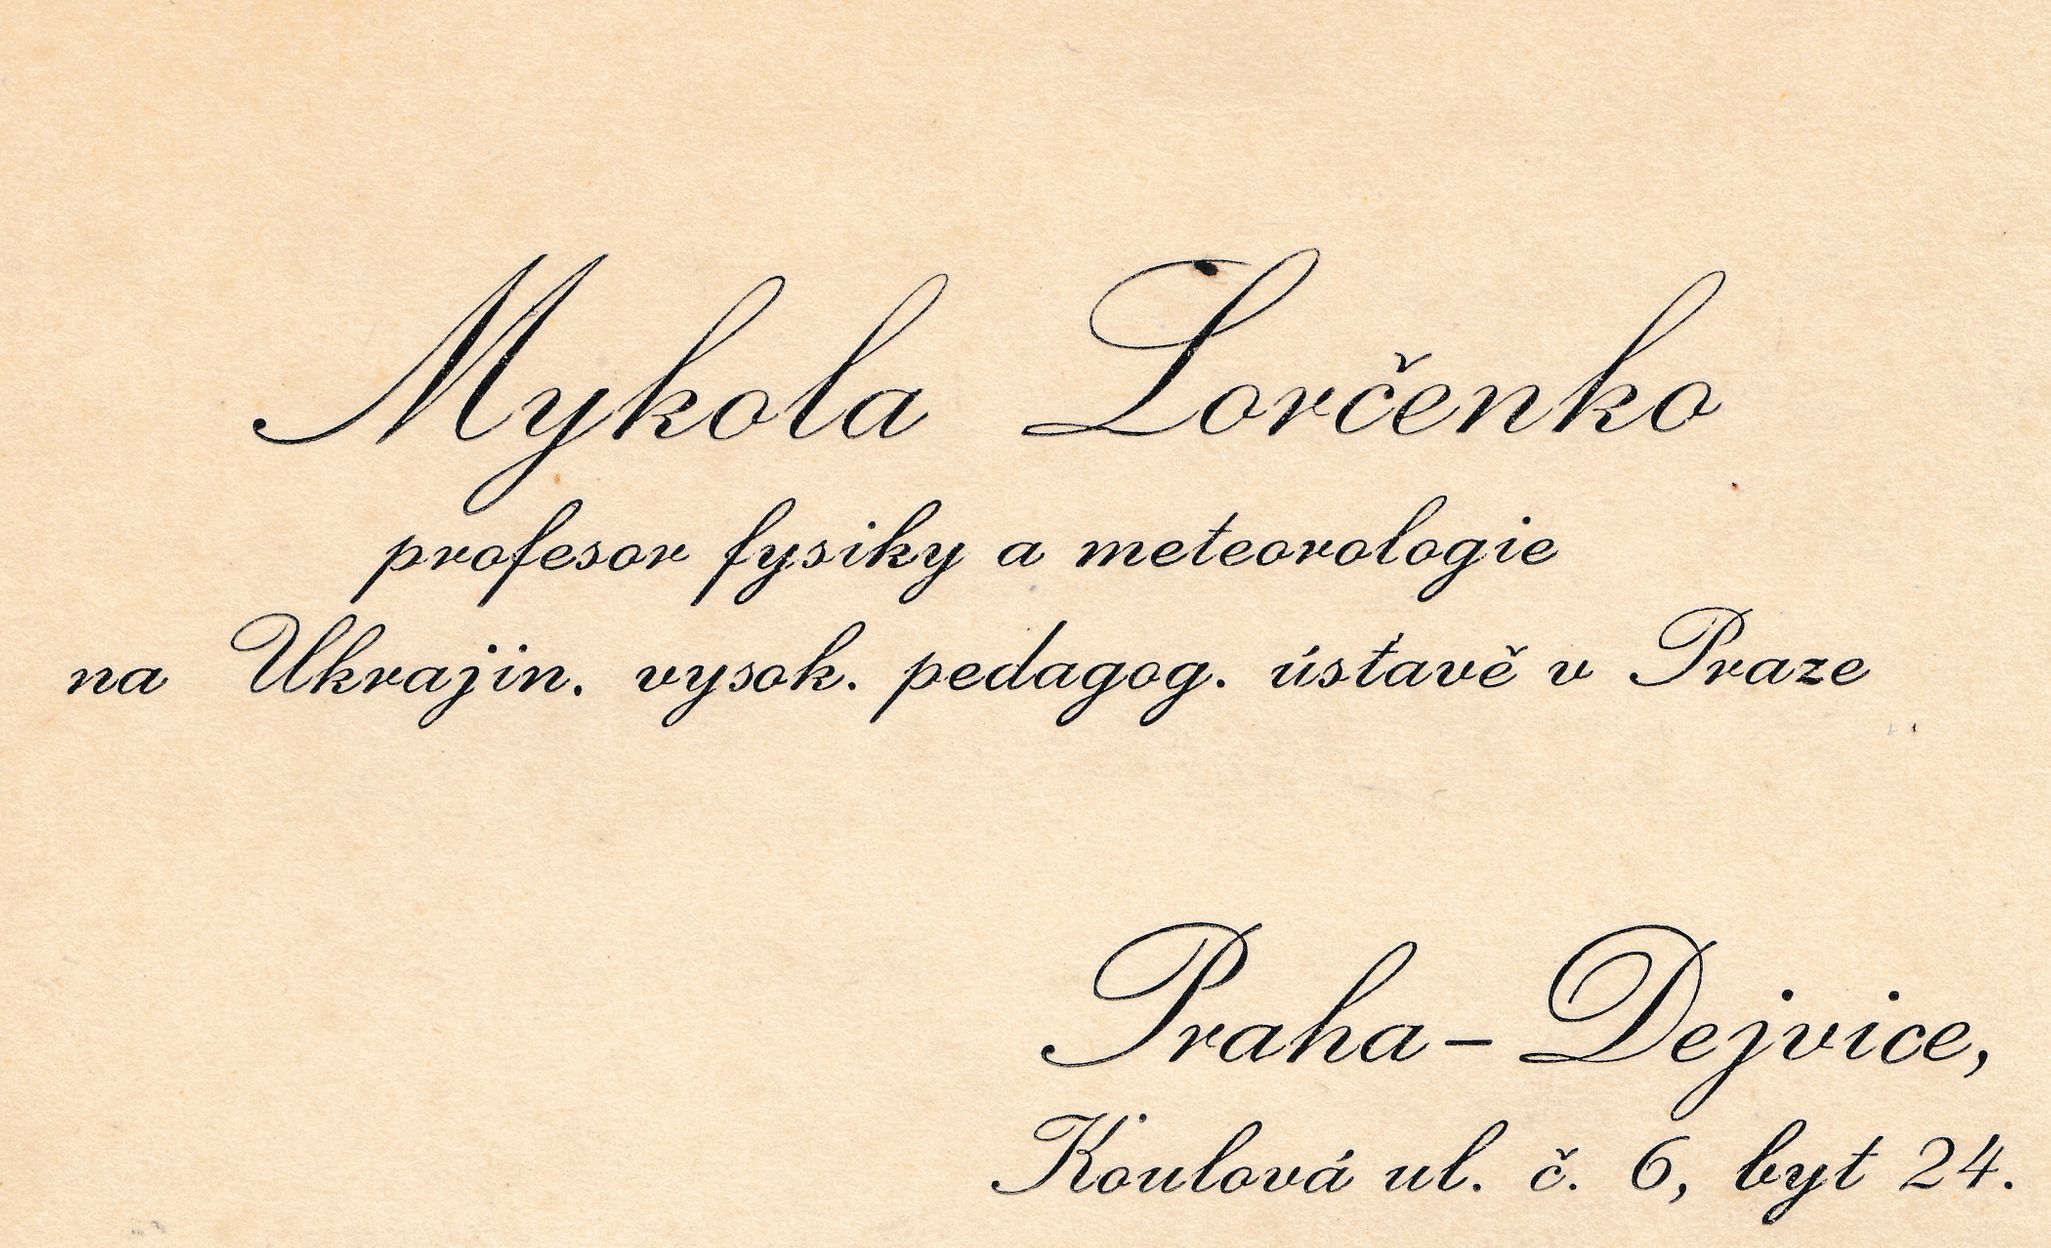 Mykola Lorčenko
profesor fysiky a meteorologie
na Ukrajin. vysok. pedagog. ústavě v Praze
Praha - Dejvice,
Koulová ul. č. 6, byt 24.